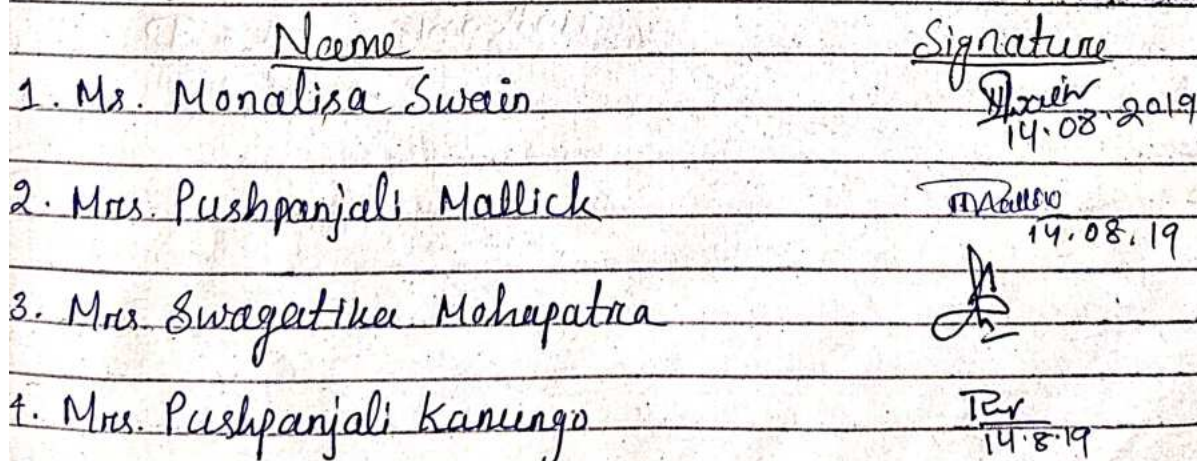 Name Signature
1. Ms. Monalisa Swain
14.08.2019
2. Mrs. Pushpanjali Mallick
14.08.19
3. Mrs Swagatika Mohapatra
4. Mrs. Pushpanjali Kanungo
14.8.19